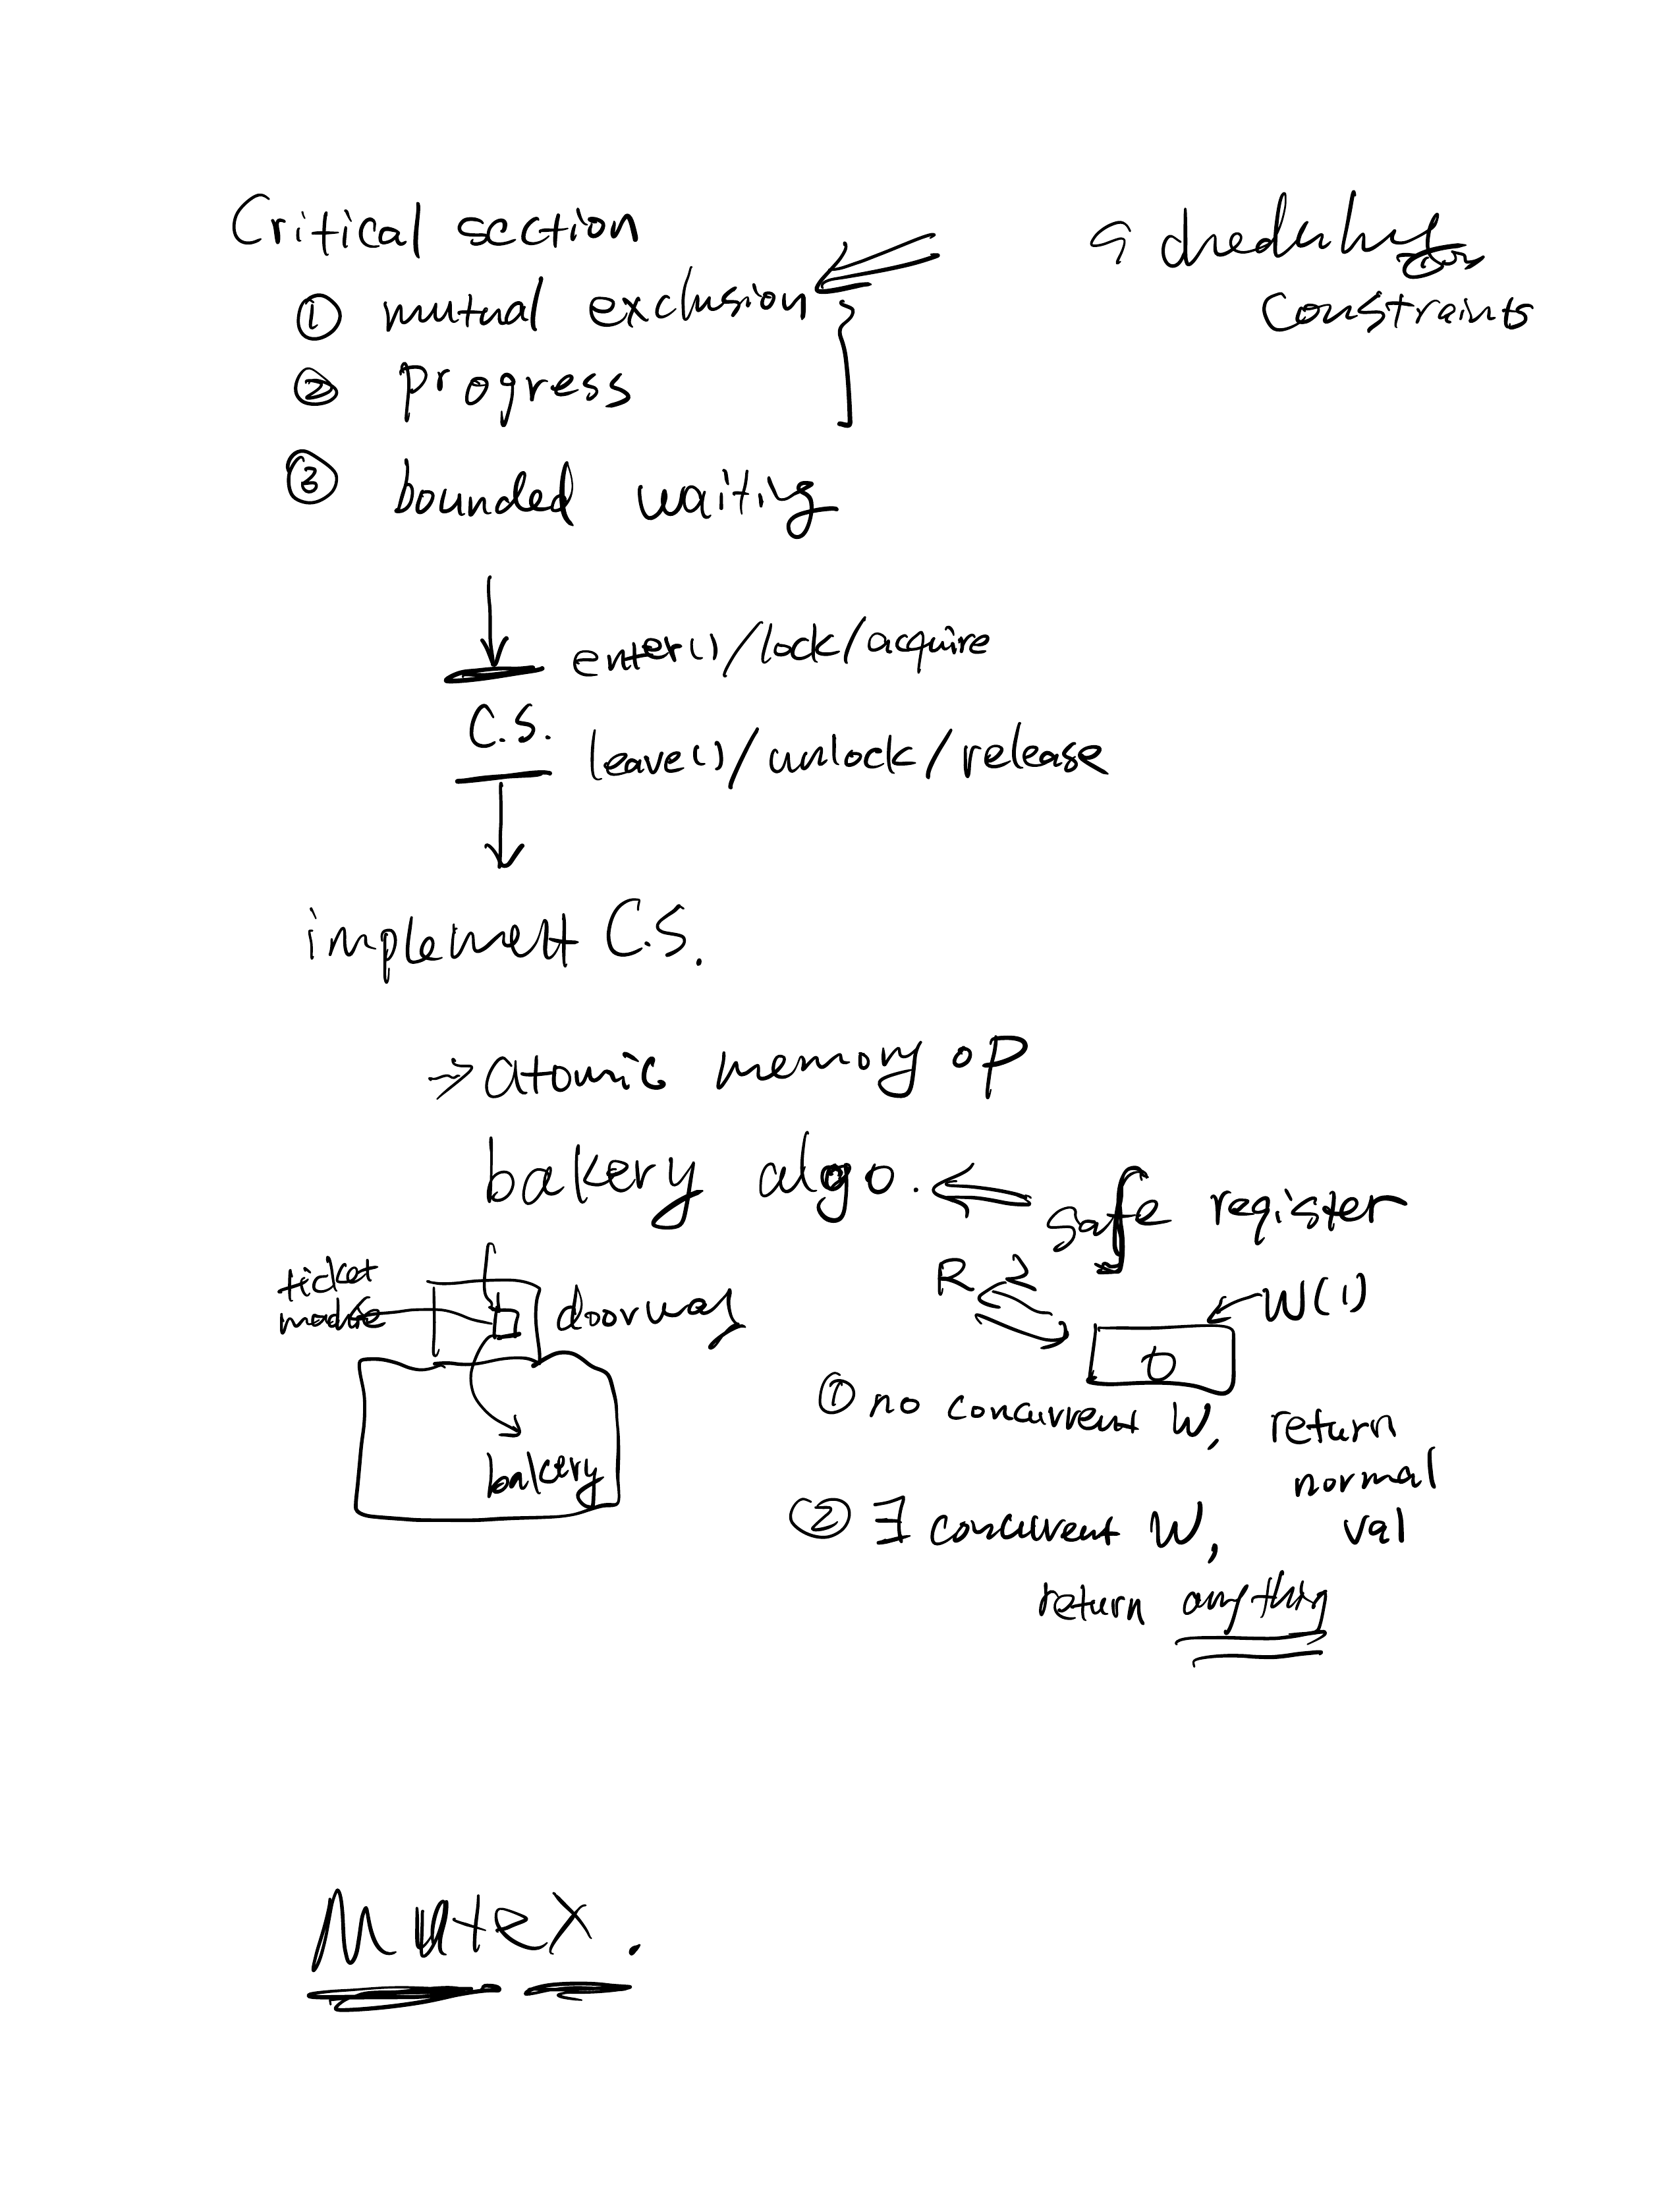 Critical section
① mutual exclusion
② progress
③ bounded waiting
constraints
enter()/lock/acquire
C.S.
leave()/unlock/release
implement C.S.
→ atomic memory op
bakery algo. ⇐ safe register
ticket
machine
doorway
bakery
R
W(1)
0
① no concurrent W, return
normal
val
② ∃ concurrent W,
return anything
Mutex.